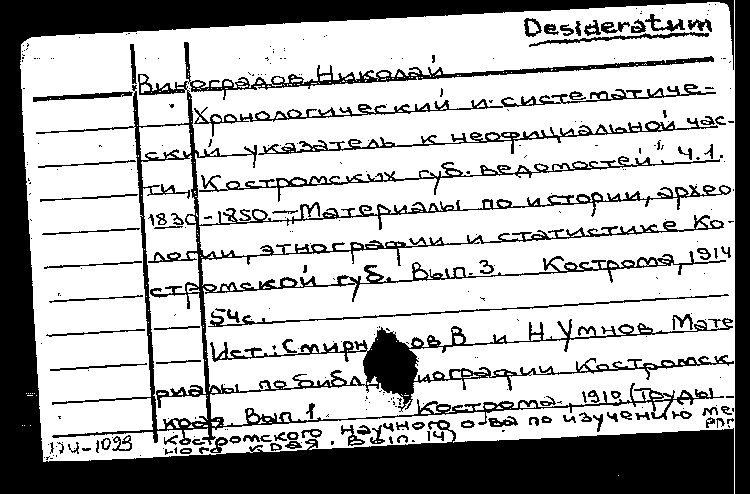 Desideratum
Виноградов, Николай
Хронологический и систематиче-
ский указатель к неофициальной час-
ти „Костромских губ. ведомостей". Ч.1.
1830-1850.-„Материалы по истории, архео
логии, этнографии и статистике Ко-
стромской губ. Вып. 3. Кострома, 1914
54с.
Ист.: Смирнов, В и Н. Умнов. Мате
риалы по библиографии Костромск
края. Вып. 1. Кострома, 1919 (Труды
Костромского научного о-ва по изучению ме
ного края. Вып. 14)